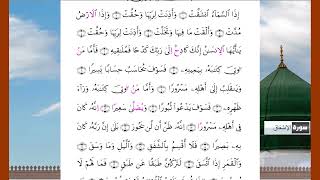 إِذَا ٱلسَّمَآءُ ٱنشَقَّتْ وَأَذِنَتْ لِرَبِّهَا وَحُقَّتْ وَإِذَا ٱلْأَرْضُ
مُدَّتْ وَأَلْقَتْ مَا فِيهَا وَتَخَلَّتْ وَأَذِنَتْ لِرَبِّهَا وَحُقَّتْ
يَٰٓأَيُّهَا ٱلْإِنسَٰنُ إِنَّكَ كَادِحٌ إِلَىٰ رَبِّكَ كَدْحًا فَمُلَٰقِيهِ فَأَمَّا مَنْ
أُوتِىَ كِتَٰبَهُۥ بِيَمِينِهِۦ فَسَوْفَ يُحَاسَبُ حِسَابًا يَسِيرًا
وَيَنقَلِبُ إِلَىٰٓ أَهْلِهِۦ مَسْرُورًا وَأَمَّا مَنْ أُوتِىَ كِتَٰبَهُۥ وَرَآءَ
ظَهْرِهِۦ فَسَوْفَ يَدْعُوا۟ ثُبُورًا وَيَصْلَىٰ سَعِيرًا إِنَّهُۥ كَانَ
فِىٓ أَهْلِهِۦ مَسْرُورًا إِنَّهُۥ ظَنَّ أَن لَّن يَحُورَ بَلَىٰٓ إِنَّ رَبَّهُۥ
كَانَ بِهِۦ بَصِيرًا فَلَآ أُقْسِمُ بِٱلشَّفَقِ وَٱلَّيْلِ وَمَا وَسَقَ
وَٱلْقَمَرِ إِذَا ٱتَّسَقَ لَتَرْكَبُنَّ طَبَقًا عَن طَبَقٍ فَمَا لَهُمْ لَا
سورة الإنشقاق